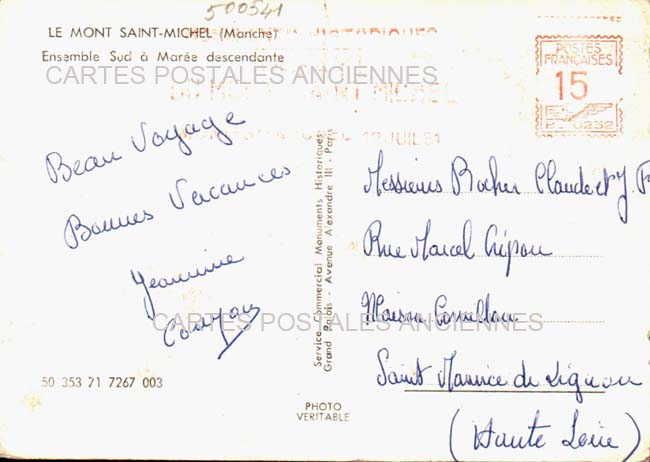 500541
LE MONT SAINT-MICHEL (Manche)
Ensemble Sud à Marée descendante
CARTES POSTALES ANCIENNES
POSTES
FRANÇAISES
15
0232
JUIL
Beau Voyage
Bonnes Vacances
Jeannine
Service Commercial Monuments Historiques
Grand Palais - Avenue Alexandre III - Paris
Messieurs Rocher Claude et J.
Rue Marcel Crépon
Maison Cornillon
Saint Maurice de Lignon
(Haute Loire)
CARTES POSTALES ANCIENNES
50 353 71 7267 003
PHOTO
VERITABLE